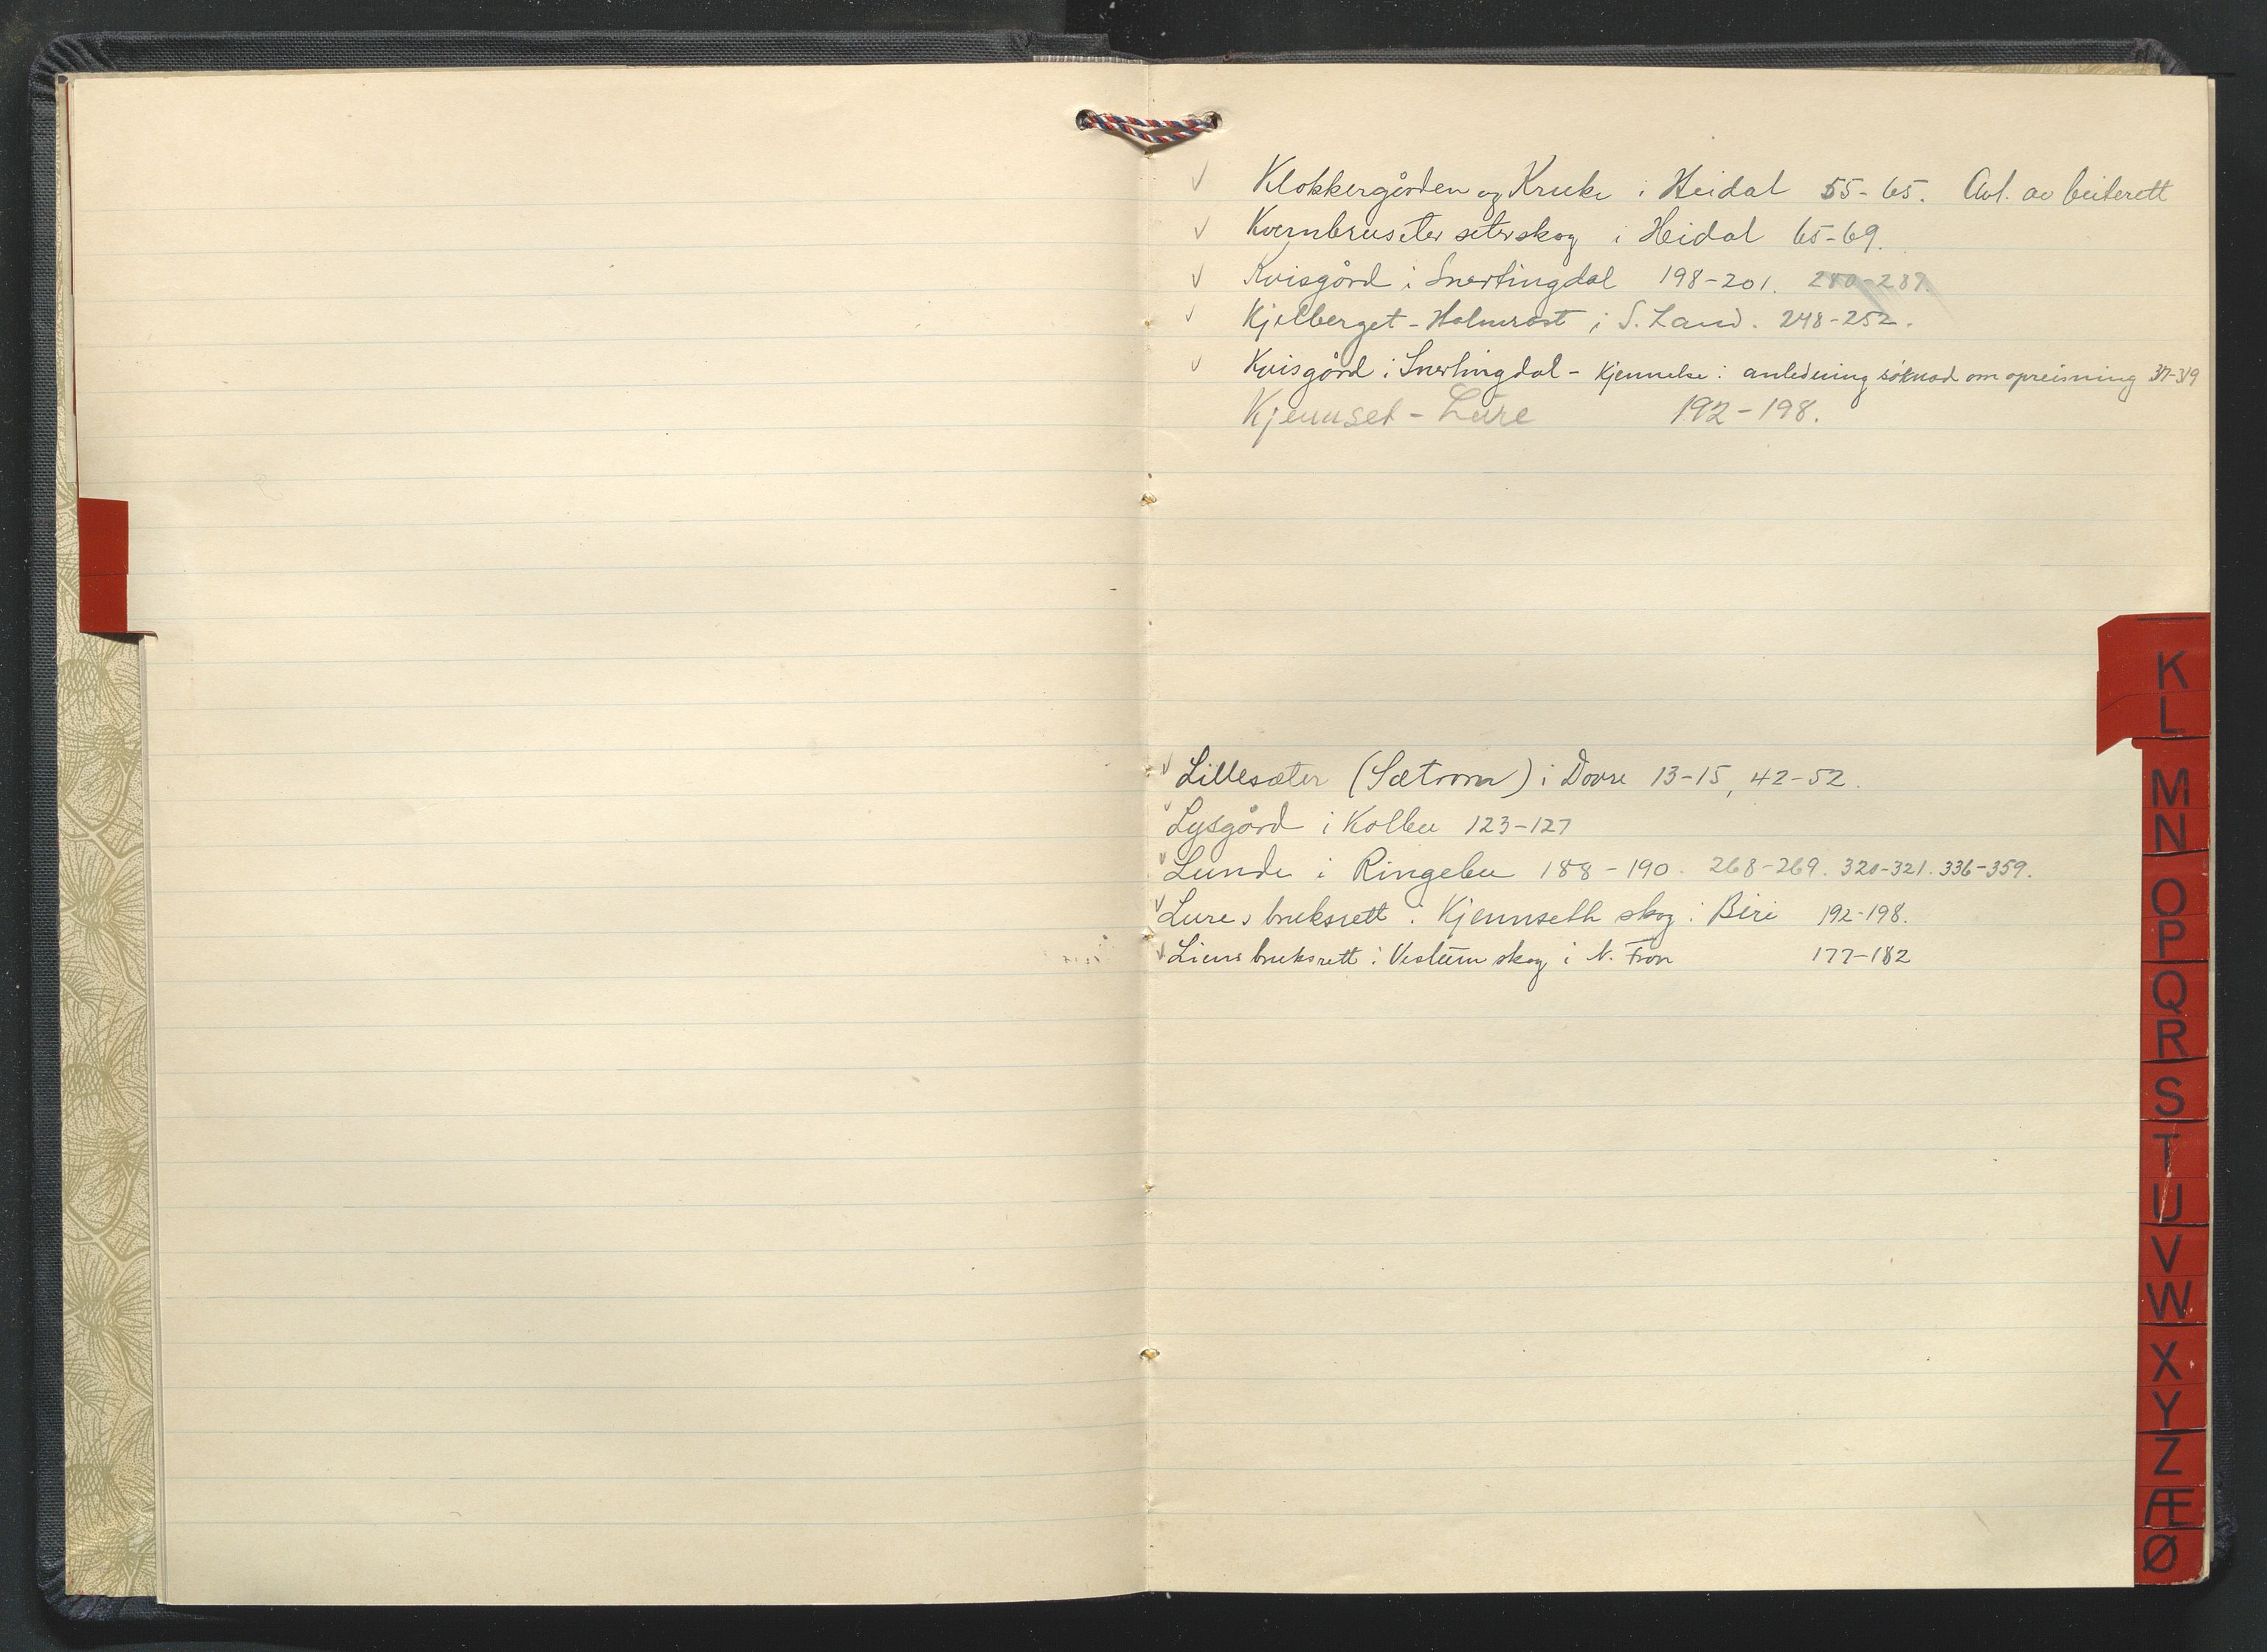 Klokkergården og Kruke i Heidal 55-65. Avl. av beiterett
Kvernbruseter seterskog i Heidal 65-69.
Kvisgård i Snertingdal 198-201. 280-287.
Kjølberget - Holmrast i S. Land. 248-252.
Kvisgård i Snertingdal - Kjennelse i anledning søknad om opreisning 317-319
Kjennset - Lure 192-198.
Lillesæter (Sætrom) i Dovre 13-15, 42-52.
Lysgård i Kolbu 123-127
Lunde i Ringebu 188-190. 268-269. 320-321. 336-359.
Lures bruksrett i Kjennseth skog i Biri 192-198.
Liens bruksrett i Vestum skog i N. Fron 177-182
K
L
M
N
O
P
Q
R
S
T
U
V
W
X
Y
Z
Æ
Ø